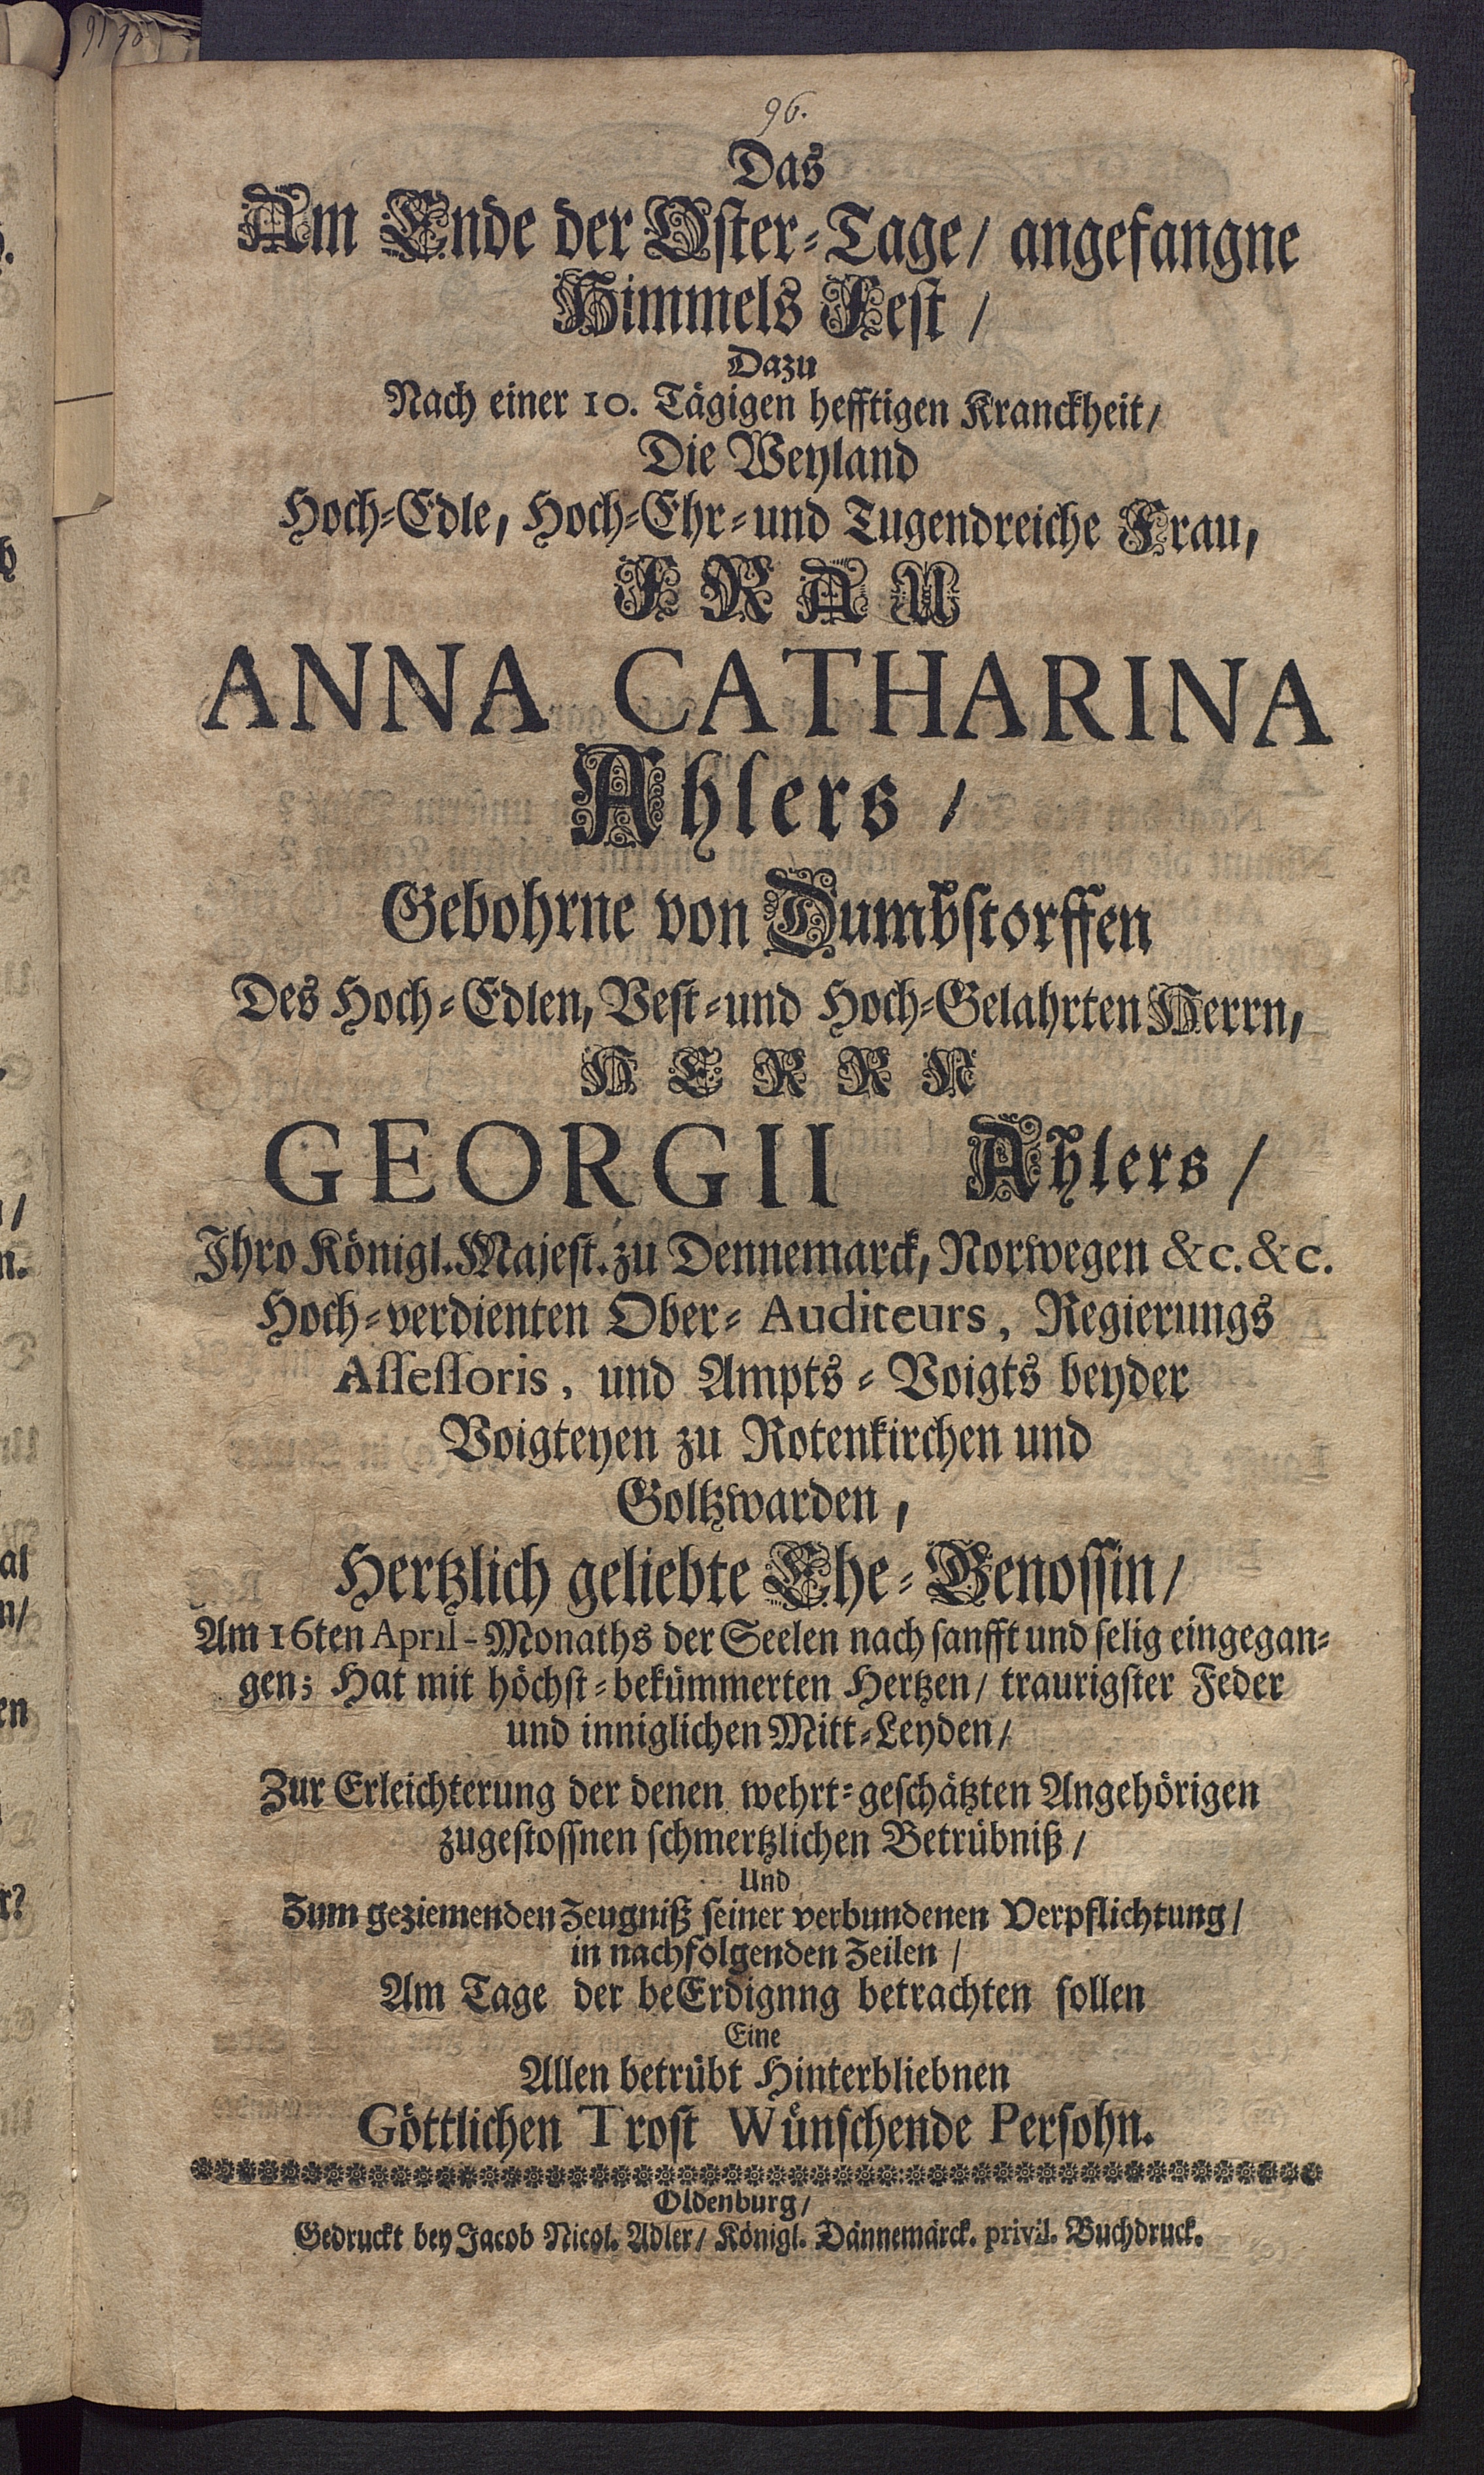 96.
Das
Am Ende der Oster-Tage/ angefangne
Himmels Fest /
Dazu
Nach einer 10. Tägigen hefftigen Kranckheit/
Die Weyland
Hoch-Edle, Hoch-Ehr-und Tugendreiche Frau,
FRAU
ANNA CATHARINA
Ahlers /
Gebohrne von Dumbstorffen
Des Hoch-Edlen, Vest-und Hoch-Gelahrten Herrn,
HERRN
GEORGII Ahlers/
Ihro Königl. Majest. zu Dennemarck, Norwegen &c. &c.
Hoch-verdienten Ober-Auditeurs, Regierungs
Assessoris, und Ampts-Voigts beyder
Voigteyen zu Rotenkirchen und
Goltzwarden,
Hertzlich geliebte Ehe-Genossin/
Am 16ten April-Monaths der Seelen nach sanfft und selig eingegan-
gen; Hat mit höchst-bekümmerten Hertzen/ traurigster Feder
und inniglichen Mitt-Leyden/
Zur Erleichterung der denen wehrt-geschätzten Angehörigen
zugestossnen schmertzlichen Betrübniß/
Und
Zum geziemenden Zeugniß seiner verbundenen Verpflichtung/
in nachfolgenden Zeilen/
Am Tage der beErdignng betrachten sollen
Eine
Allen betrübt Hinterbliebnen
Göttlichen Trost Wünschende Persohn.
Oldenburg/
Gedruckt bey Jacob Nicol. Adler/ Königl. Dännemärck. privil. Buchdruck.